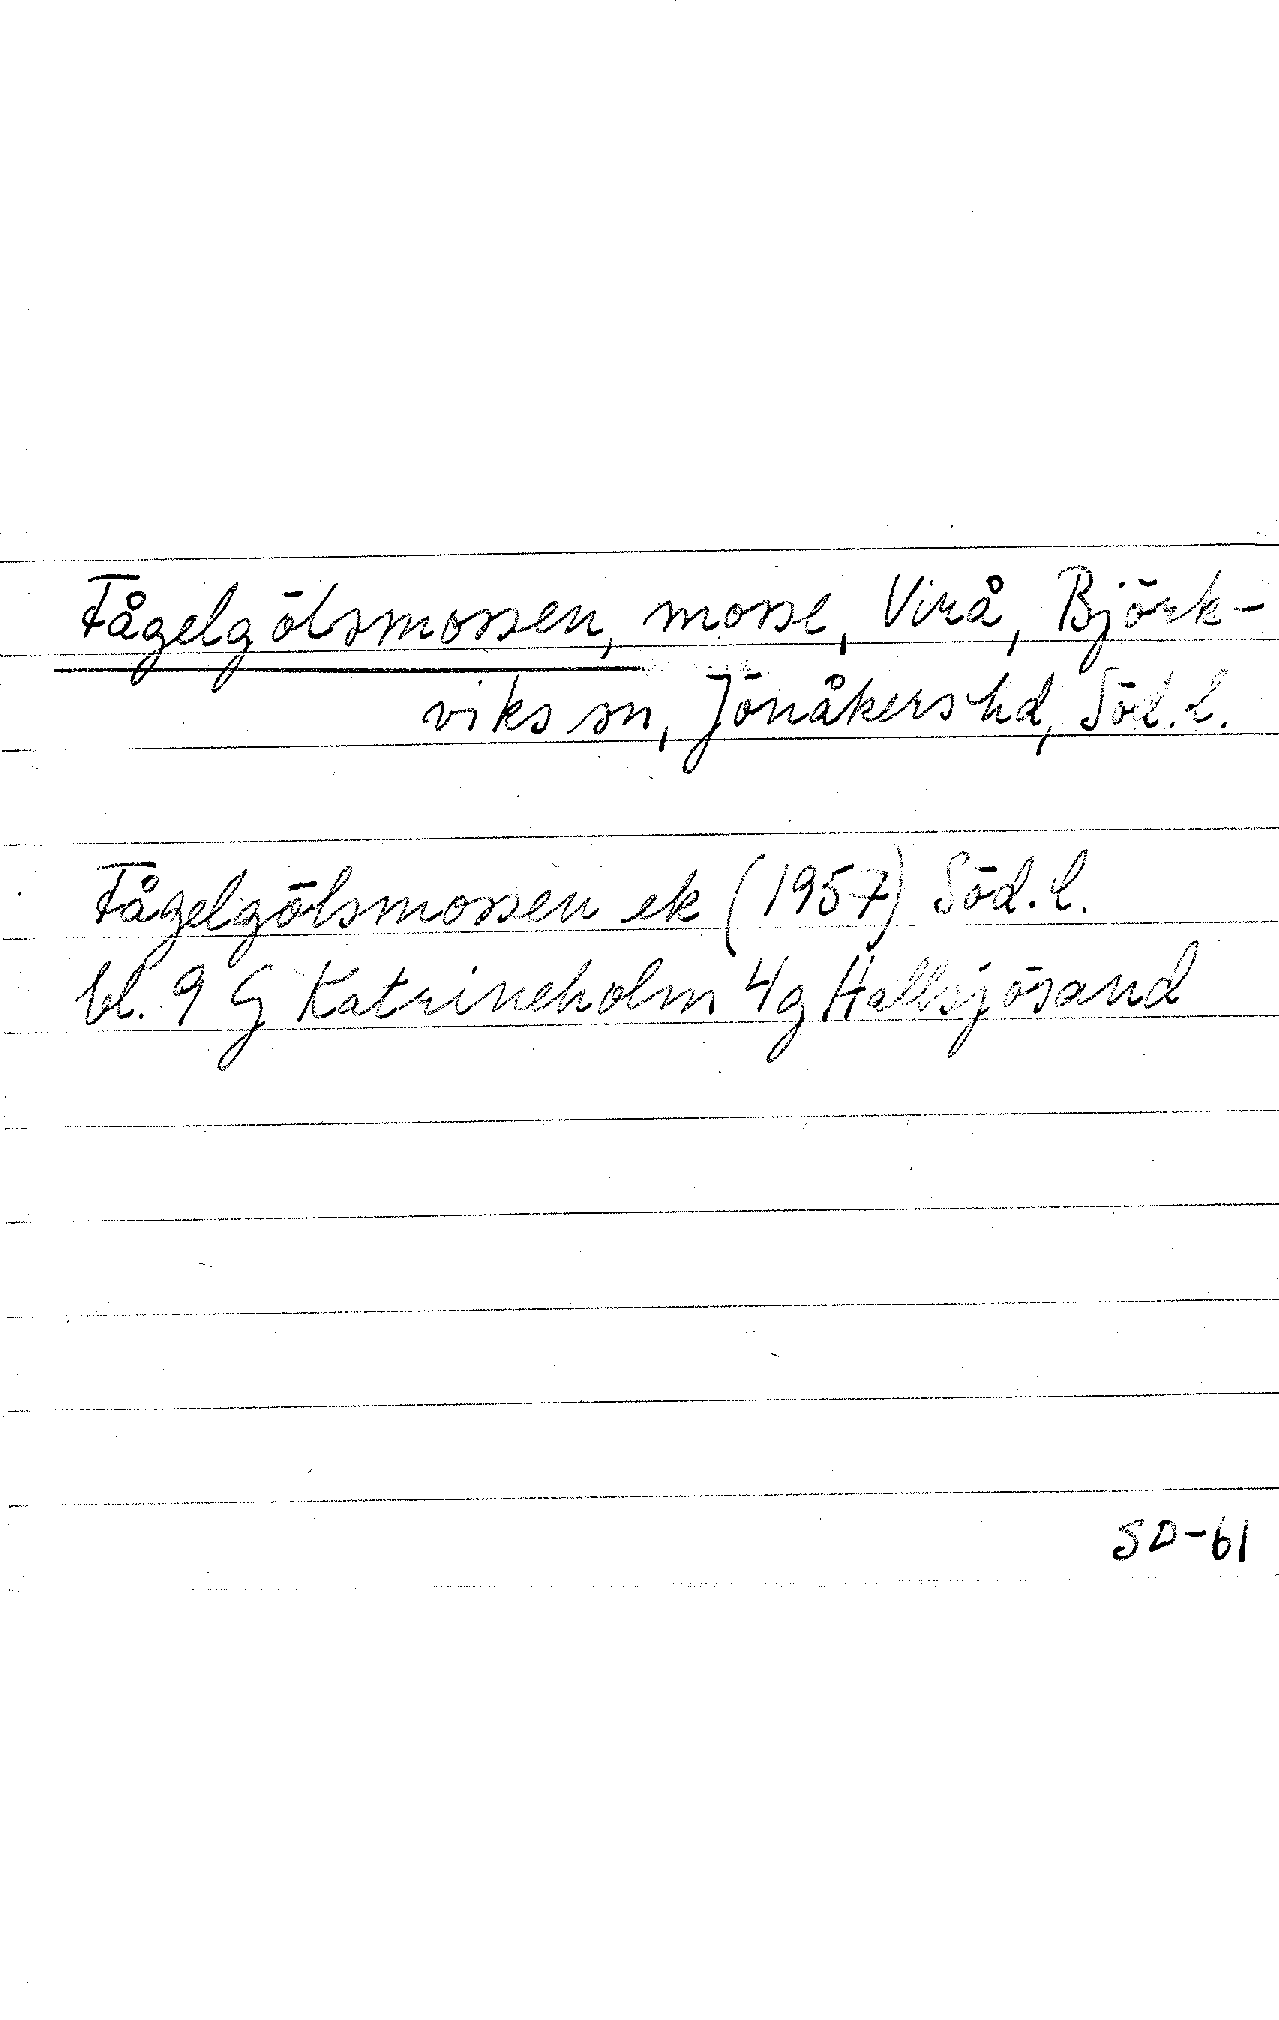 Fågelgölsmossen, mosse, Virå, Björk-
viks sn, Jönåkers hd, Söd. l.
Fågelgölsmossen ek (1957) Söd. l.
bl. 9 G Katrineholm 4g Hallsjösand
SD-61